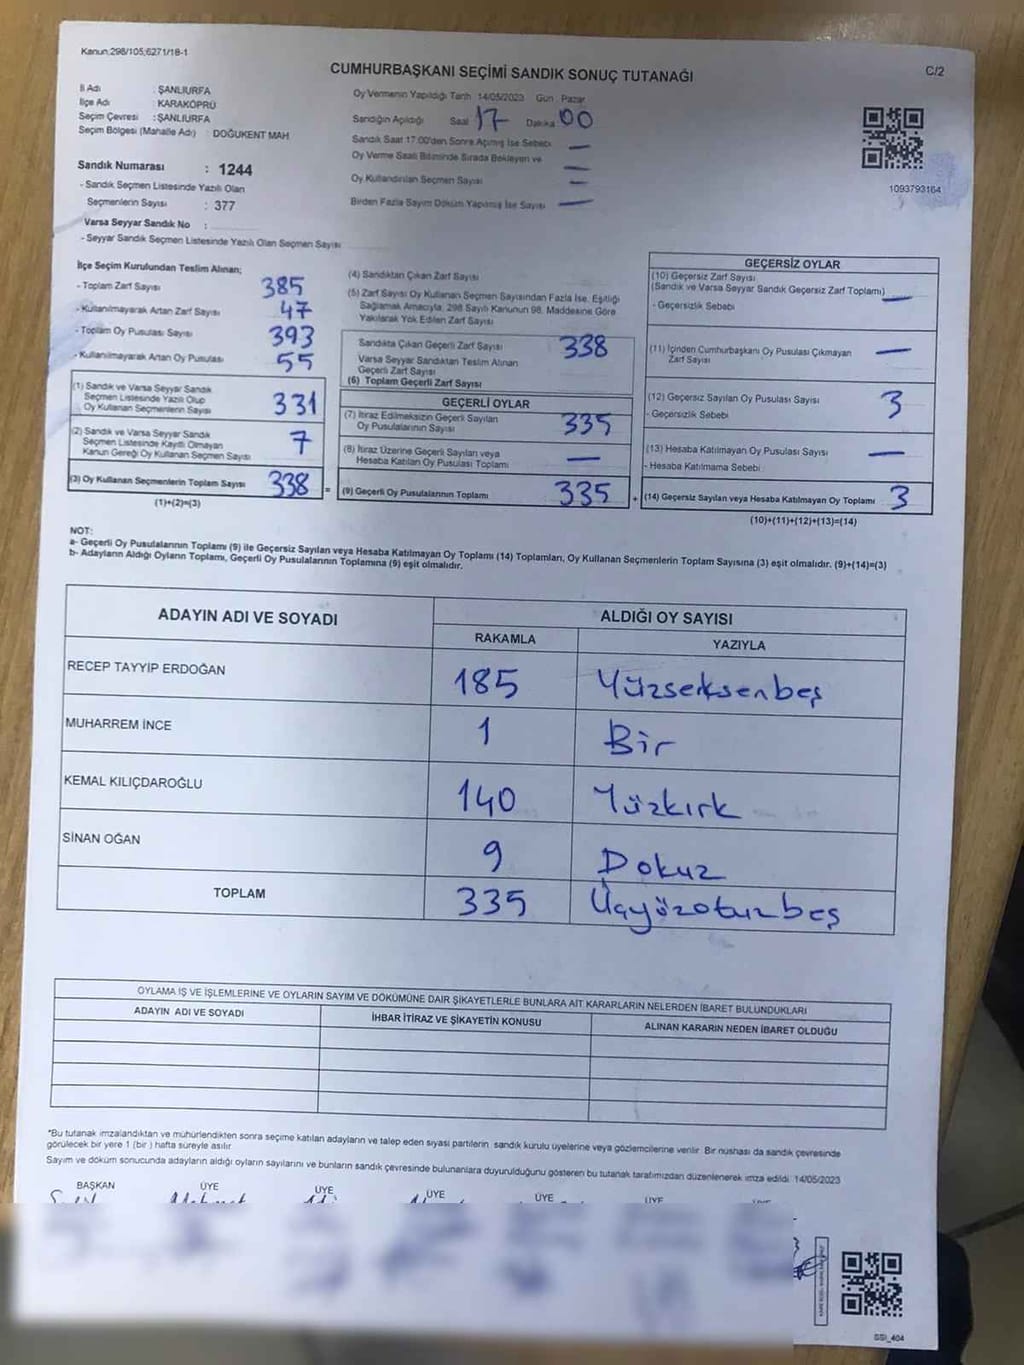 Kanun:298/105;6271/18-1
CUMHURBAŞKANI SEÇİMİ SANDIK SONUÇ TUTANAĞI
C/2
İl Adı : ŞANLIURFA
İlçe Adı : KARAKÖPRÜ
Seçim Çevresi : ŞANLIURFA
Seçim Bölgesi (Mahalle Adı) : DOĞUKENT MAH
Sandık Numarası : 1244
- Sandık Seçmen Listesinde Yazılı Olan
Seçmenlerin Sayısı : 377
Varsa Seyyar Sandık No :
- Seyyar Sandık Seçmen Listesinde Yazılı Olan Seçmen Sayısı
Oy Vermenin Yapıldığı Tarih 14/05/2023 Gün Pazar
Sandığın Açıldığı Saat 17 Dakika 00
Sandık Saat 17:00'den Sonra Açılmış İse Sebebi —
Oy Verme Saati Bitiminde Sırada Bekleyen ve —
Oy Kullandırılan Seçmen Sayısı —
Birden Fazla Sayım Döküm Yapılmış İse Sayısı —
1093793164
İlçe Seçim Kurulundan Teslim Alınan;
- Toplam Zarf Sayısı 385
- Kullanılmayarak Artan Zarf Sayısı 47
- Toplam Oy Pusulası Sayısı 393
- Kullanılmayarak Artan Oy Pusulası 55
(1) Sandık ve Varsa Seyyar Sandık
Seçmen Listesinde Yazılı Olup
Oy Kullanan Seçmenlerin Sayısı 331
(2) Sandık ve Varsa Seyyar Sandık
Seçmen Listesinde Kayıtlı Olmayan
Kanun Gereği Oy Kullanan Seçmen Sayısı 7
(3) Oy Kullanan Seçmenlerin Toplam Sayısı 338 =
(1)+(2)=(3)
(4) Sandıktan Çıkan Zarf Sayısı
(5) Zarf Sayısı Oy Kullanan Seçmen Sayısından Fazla İse, Eşitliği
Sağlamak Amacıyla, 298 Sayılı Kanunun 98. Maddesine Göre
Yakılarak Yok Edilen Zarf Sayısı
Sandıkta Çıkan Geçerli Zarf Sayısı 338
Varsa Seyyar Sandıktan Teslim Alınan
Geçerli Zarf Sayısı
(6) Toplam Geçerli Zarf Sayısı
GEÇERLİ OYLAR
(7) İtiraz Edilmeksizin Geçerli Sayılan
Oy Pusulalarının Sayısı 335
(8) İtiraz Üzerine Geçerli Sayılan veya
Hesaba Katılan Oy Pusulası Toplamı —
(9) Geçerli Oy Pusulalarının Toplamı 335 +
GEÇERSİZ OYLAR
(10) Geçersiz Zarf Sayısı
(Sandık ve Varsa Seyyar Sandık Geçersiz Zarf Toplamı) —
- Geçersizlik Sebebi
(11) İçinden Cumhurbaşkanı Oy Pusulası Çıkmayan
Zarf Sayısı —
(12) Geçersiz Sayılan Oy Pusulası Sayısı 3
- Geçersizlik Sebebi
(13) Hesaba Katılmayan Oy Pusulası Sayısı —
- Hesaba Katılmama Sebebi
(14) Geçersiz Sayılan veya Hesaba Katılmayan Oy Toplamı 3
(10)+(11)+(12)+(13)=(14)
NOT:
a- Geçerli Oy Pusulalarının Toplamı (9) ile Geçersiz Sayılan veya Hesaba Katılmayan Oy Toplamı (14) Toplamları, Oy Kullanan Seçmenlerin Toplam Sayısına (3) eşit olmalıdır. (9)+(14)=(3)
b- Adayların Aldığı Oyların Toplamı, Geçerli Oy Pusulalarının Toplamına (9) eşit olmalıdır.
ADAYIN ADI VE SOYADI
ALDIĞI OY SAYISI
RAKAMLA YAZIYLA
RECEP TAYYİP ERDOĞAN 185 Yüzserksenbeş
MUHARREM İNCE 1 Bir
KEMAL KILIÇDAROĞLU 140 Yüzkırk
SİNAN OĞAN 9 Dokuz
TOPLAM 335 Üçyüzotuzbeş
OYLAMA İŞ VE İŞLEMLERİNE VE OYLARIN SAYIM VE DÖKÜMÜNE DAİR ŞİKAYETLERLE BUNLARA AİT KARARLARIN NELERDEN İBARET BULUNDUKLARI
ADAYIN ADI VE SOYADI İHBAR İTİRAZ VE ŞİKAYETİN KONUSU ALINAN KARARIN NEDEN İBARET OLDUĞU
*Bu tutanak imzalandıktan ve mühürlendikten sonra seçime katılan adayların ve talep eden siyasi partilerin sandık kurulu üyelerine veya gözlemcilerine verilir. Bir nüshası da sandık çevresinde
görülecek bir yere 1 (bir) hafta süreyle asılır.
Sayım ve döküm sonucunda adayların aldığı oyların sayılarını ve bunların sandık çevresinde bulunanlara duyurulduğunu gösteren bu tutanak tarafımızdan düzenlenerek imza edildi. 14/05/2023
BAŞKAN ÜYE ÜYE ÜYE ÜYE ÜYE ÜYE
SSİ_404